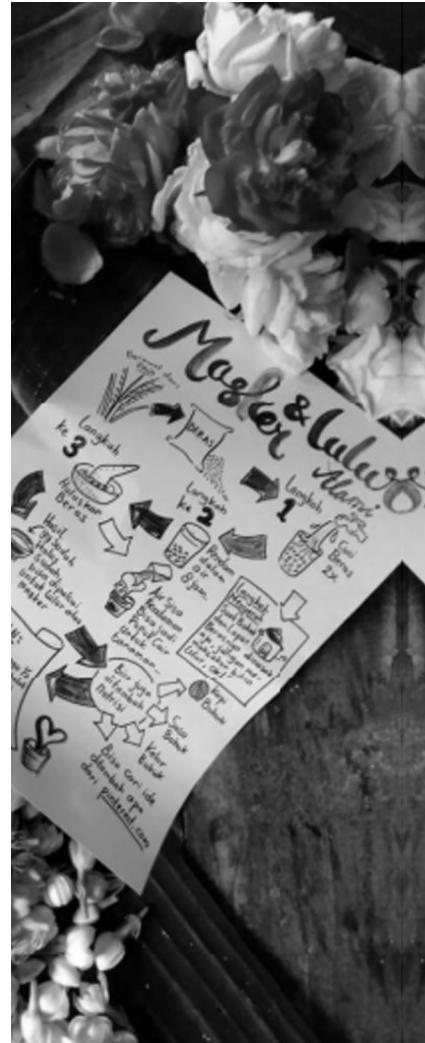 Masker & lulur
Alami
Berawal dari
BERAS
Langkah
1
Cuci
Beras
2x
Langkah
ke 2
Rendam
dalam
air
8 jam.
Langkah
ke 3
Haluskan
Beras
Hasil
yg sudah
Halus
bisa dipakai
untuk lulur atau
masker
Air sisa
Rendaman
bisa jadi
Pupuk Cair
untuk
tanaman
Langkah
Bisa juga
ditambah
nutrisi
Kopi
Bubuk
Susu
Bubuk
Kelor
Bubuk
Bisa cari ide
ditambah apa
dari pinterest.com